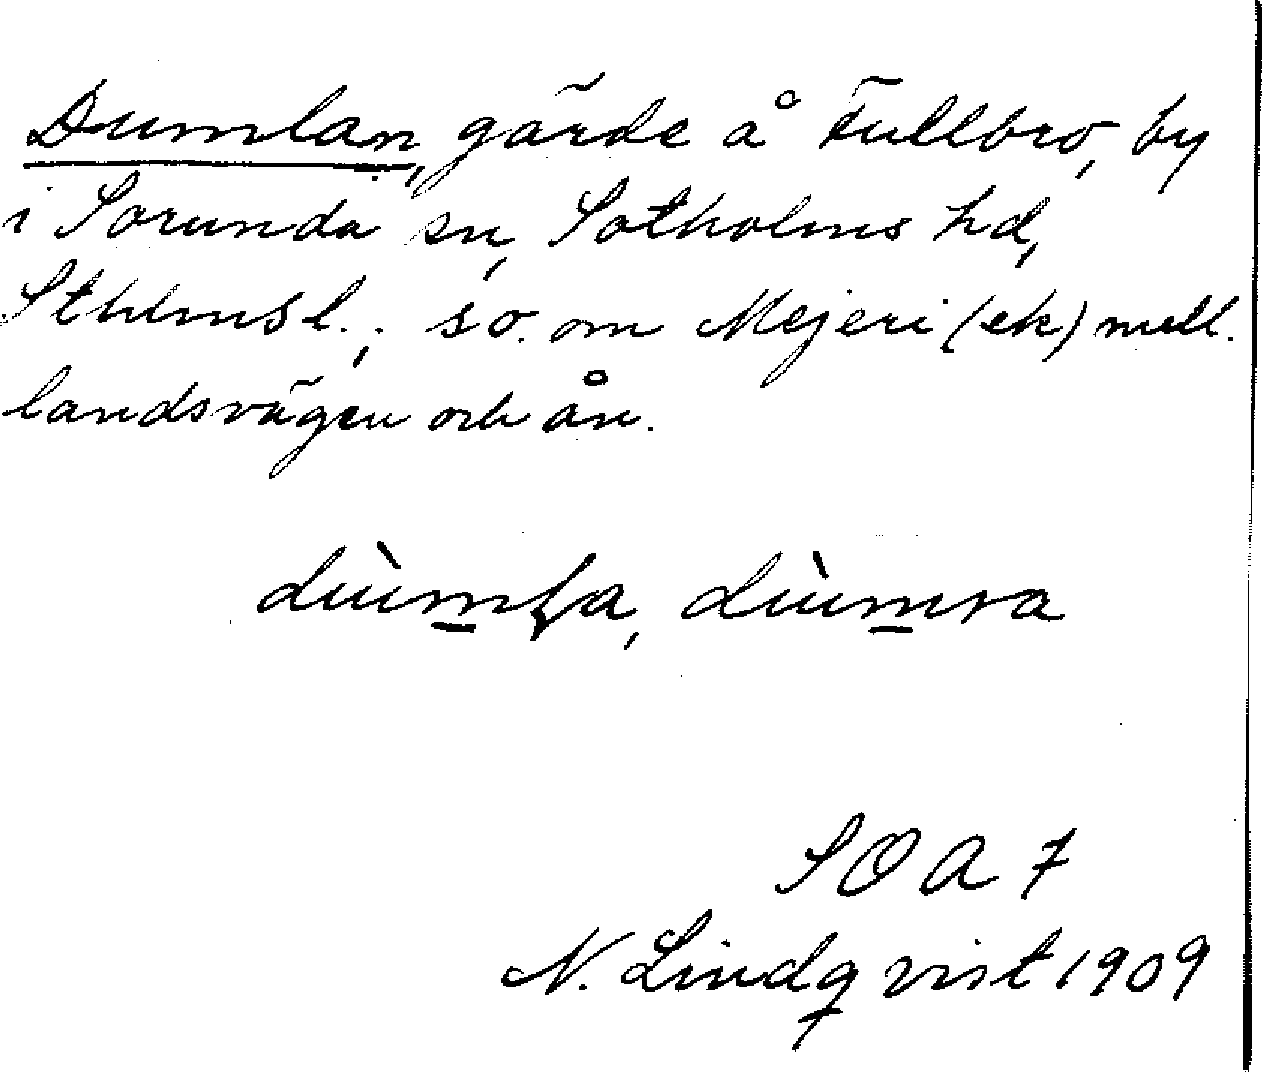 Dumlan, gärde å Fullbro, by
i Sorunda sn, Sotholms hd,
Sthlmsl.; so. om Mejeri (ek) mell.
landsvägen och ån.
SOA 7
N. Lindqvist 1909